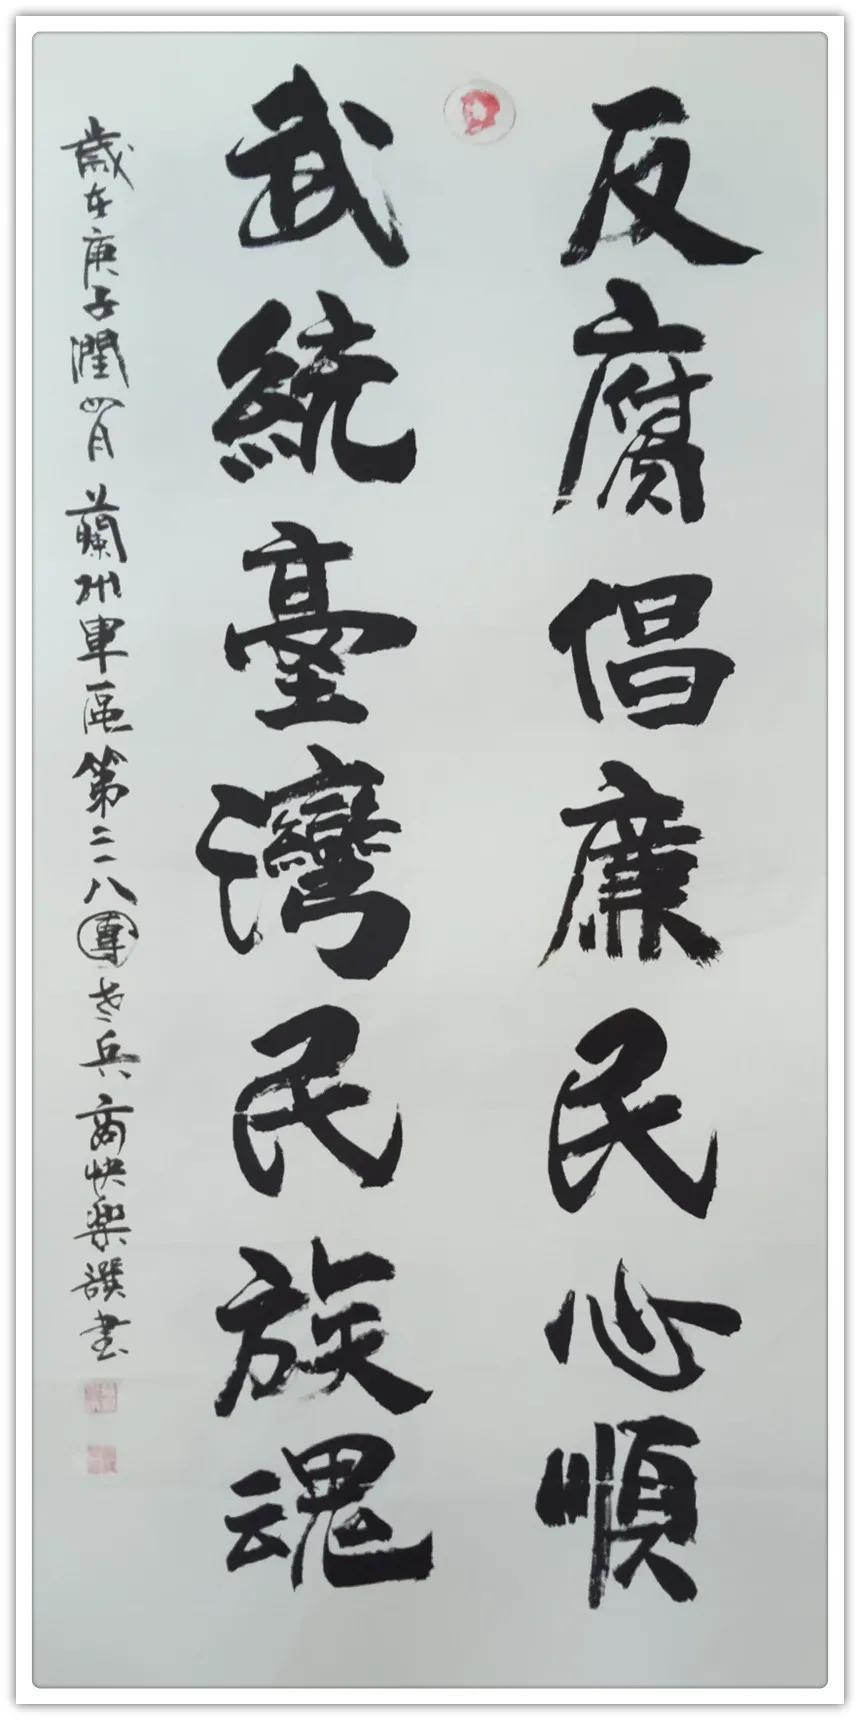 反腐倡廉民心順
武統臺灣民族魂
歲在庚子潤四月蘭州軍區第二一八團老兵商快樂譔書